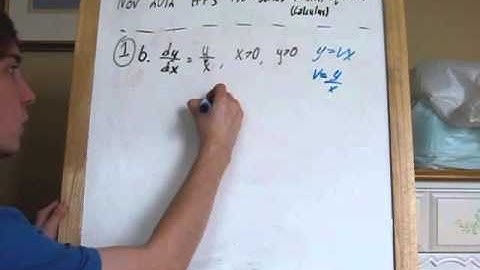 Nov 2012
(Calculus)
① b. dy/dx = y/x, x>0, y>0 y=vx
v=y/x